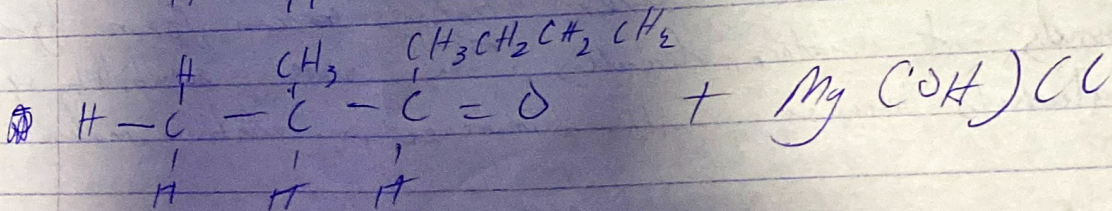 H CH3 CH3CH2CH2CH2
H - C - C - C = O + Mg(OH)Cl
H H H